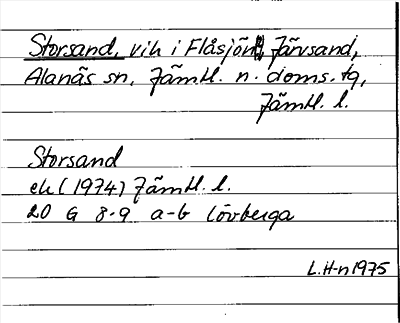 Storsand, vik i Flåsjön, Järvsand,
Alanäs sn, Jämtl. n. doms.tg,
Jämtl. l.
Storsand
ek (1974) Jämtl. l.
20 G 8-9 a-b Lövberga
L.H-n 1975